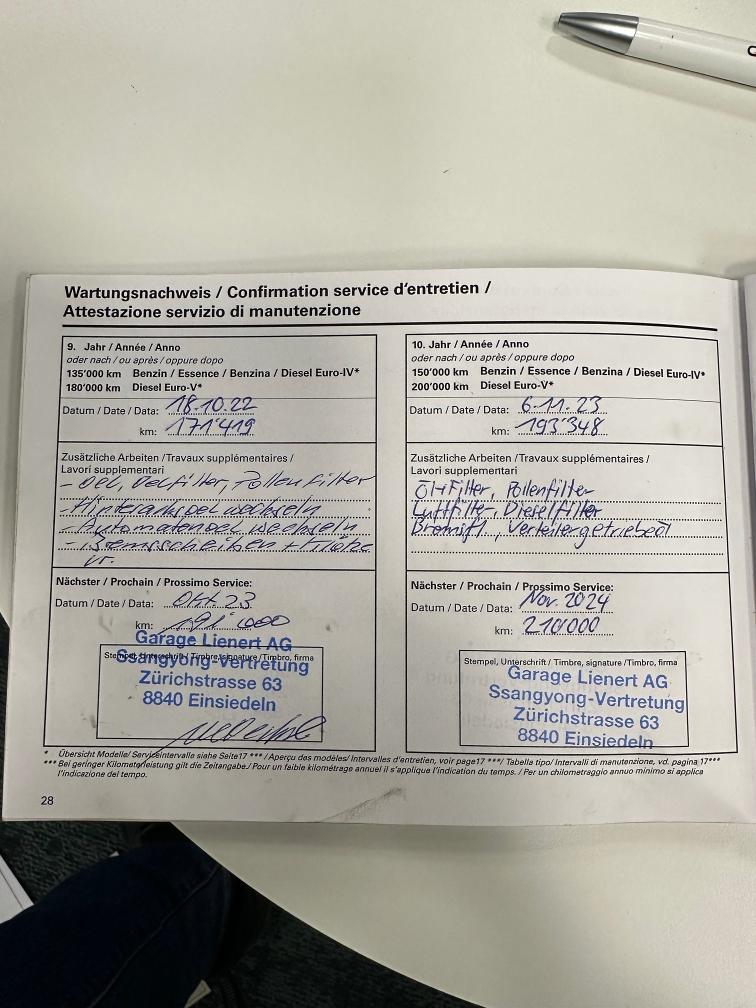 Wartungsnachweis / Confirmation service d'entretien /
Attestazione servizio di manutenzione
9. Jahr / Année / Anno
oder nach / ou après / oppure dopo
135'000 km Benzin / Essence / Benzina / Diesel Euro-IV*
180'000 km Diesel Euro-V*
Datum / Date / Data: 18.10.22
km: 171'419
Zusätzliche Arbeiten / Travaux supplémentaires /
Lavori supplementari
- Oel, Oelfilter, Pollenfilter
- Hinterachsoel wechseln
- Automatenoel wechseln
- Bremsscheiben + Klötze
vr.
Nächster / Prochain / Prossimo Service:
Datum / Date / Data: Okt. 23
km: 191'000
Garage Lienert AG
Stempel, Unterschrift / Timbre, signature / Timbro, firma
Ssangyong-Vertretung
Zürichstrasse 63
8840 Einsiedeln
10. Jahr / Année / Anno
oder nach / ou après / oppure dopo
150'000 km Benzin / Essence / Benzina / Diesel Euro-IV*
200'000 km Diesel Euro-V*
Datum / Date / Data: 6.11.23
km: 193'348
Zusätzliche Arbeiten / Travaux supplémentaires /
Lavori supplementari
Öl+Filter, Pollenfilter
Luftfilter, Dieselfilter
Bremsfl., Verteilergetriebeöl
Nächster / Prochain / Prossimo Service:
Datum / Date / Data: Nov. 2024
km: 210'000
Stempel, Unterschrift / Timbre, signature / Timbro, firma
Garage Lienert AG
Ssangyong-Vertretung
Zürichstrasse 63
8840 Einsiedeln
* Übersicht Modelle/ Serviceintervalle siehe Seite17 ***/ Aperçu des modèles/ Intervalles d'entretien, voir page17 ***/ Tabella tipo/ Intervalli di manutenzione, vd. pagina 17***
*** Bei geringer Kilometerleistung gilt die Zeitangabe./ Pour un faible kilométrage annuel il s'applique l'indication du temps. / Per un chilometraggio annuo minimo si applica
l'indicazione del tempo.
28